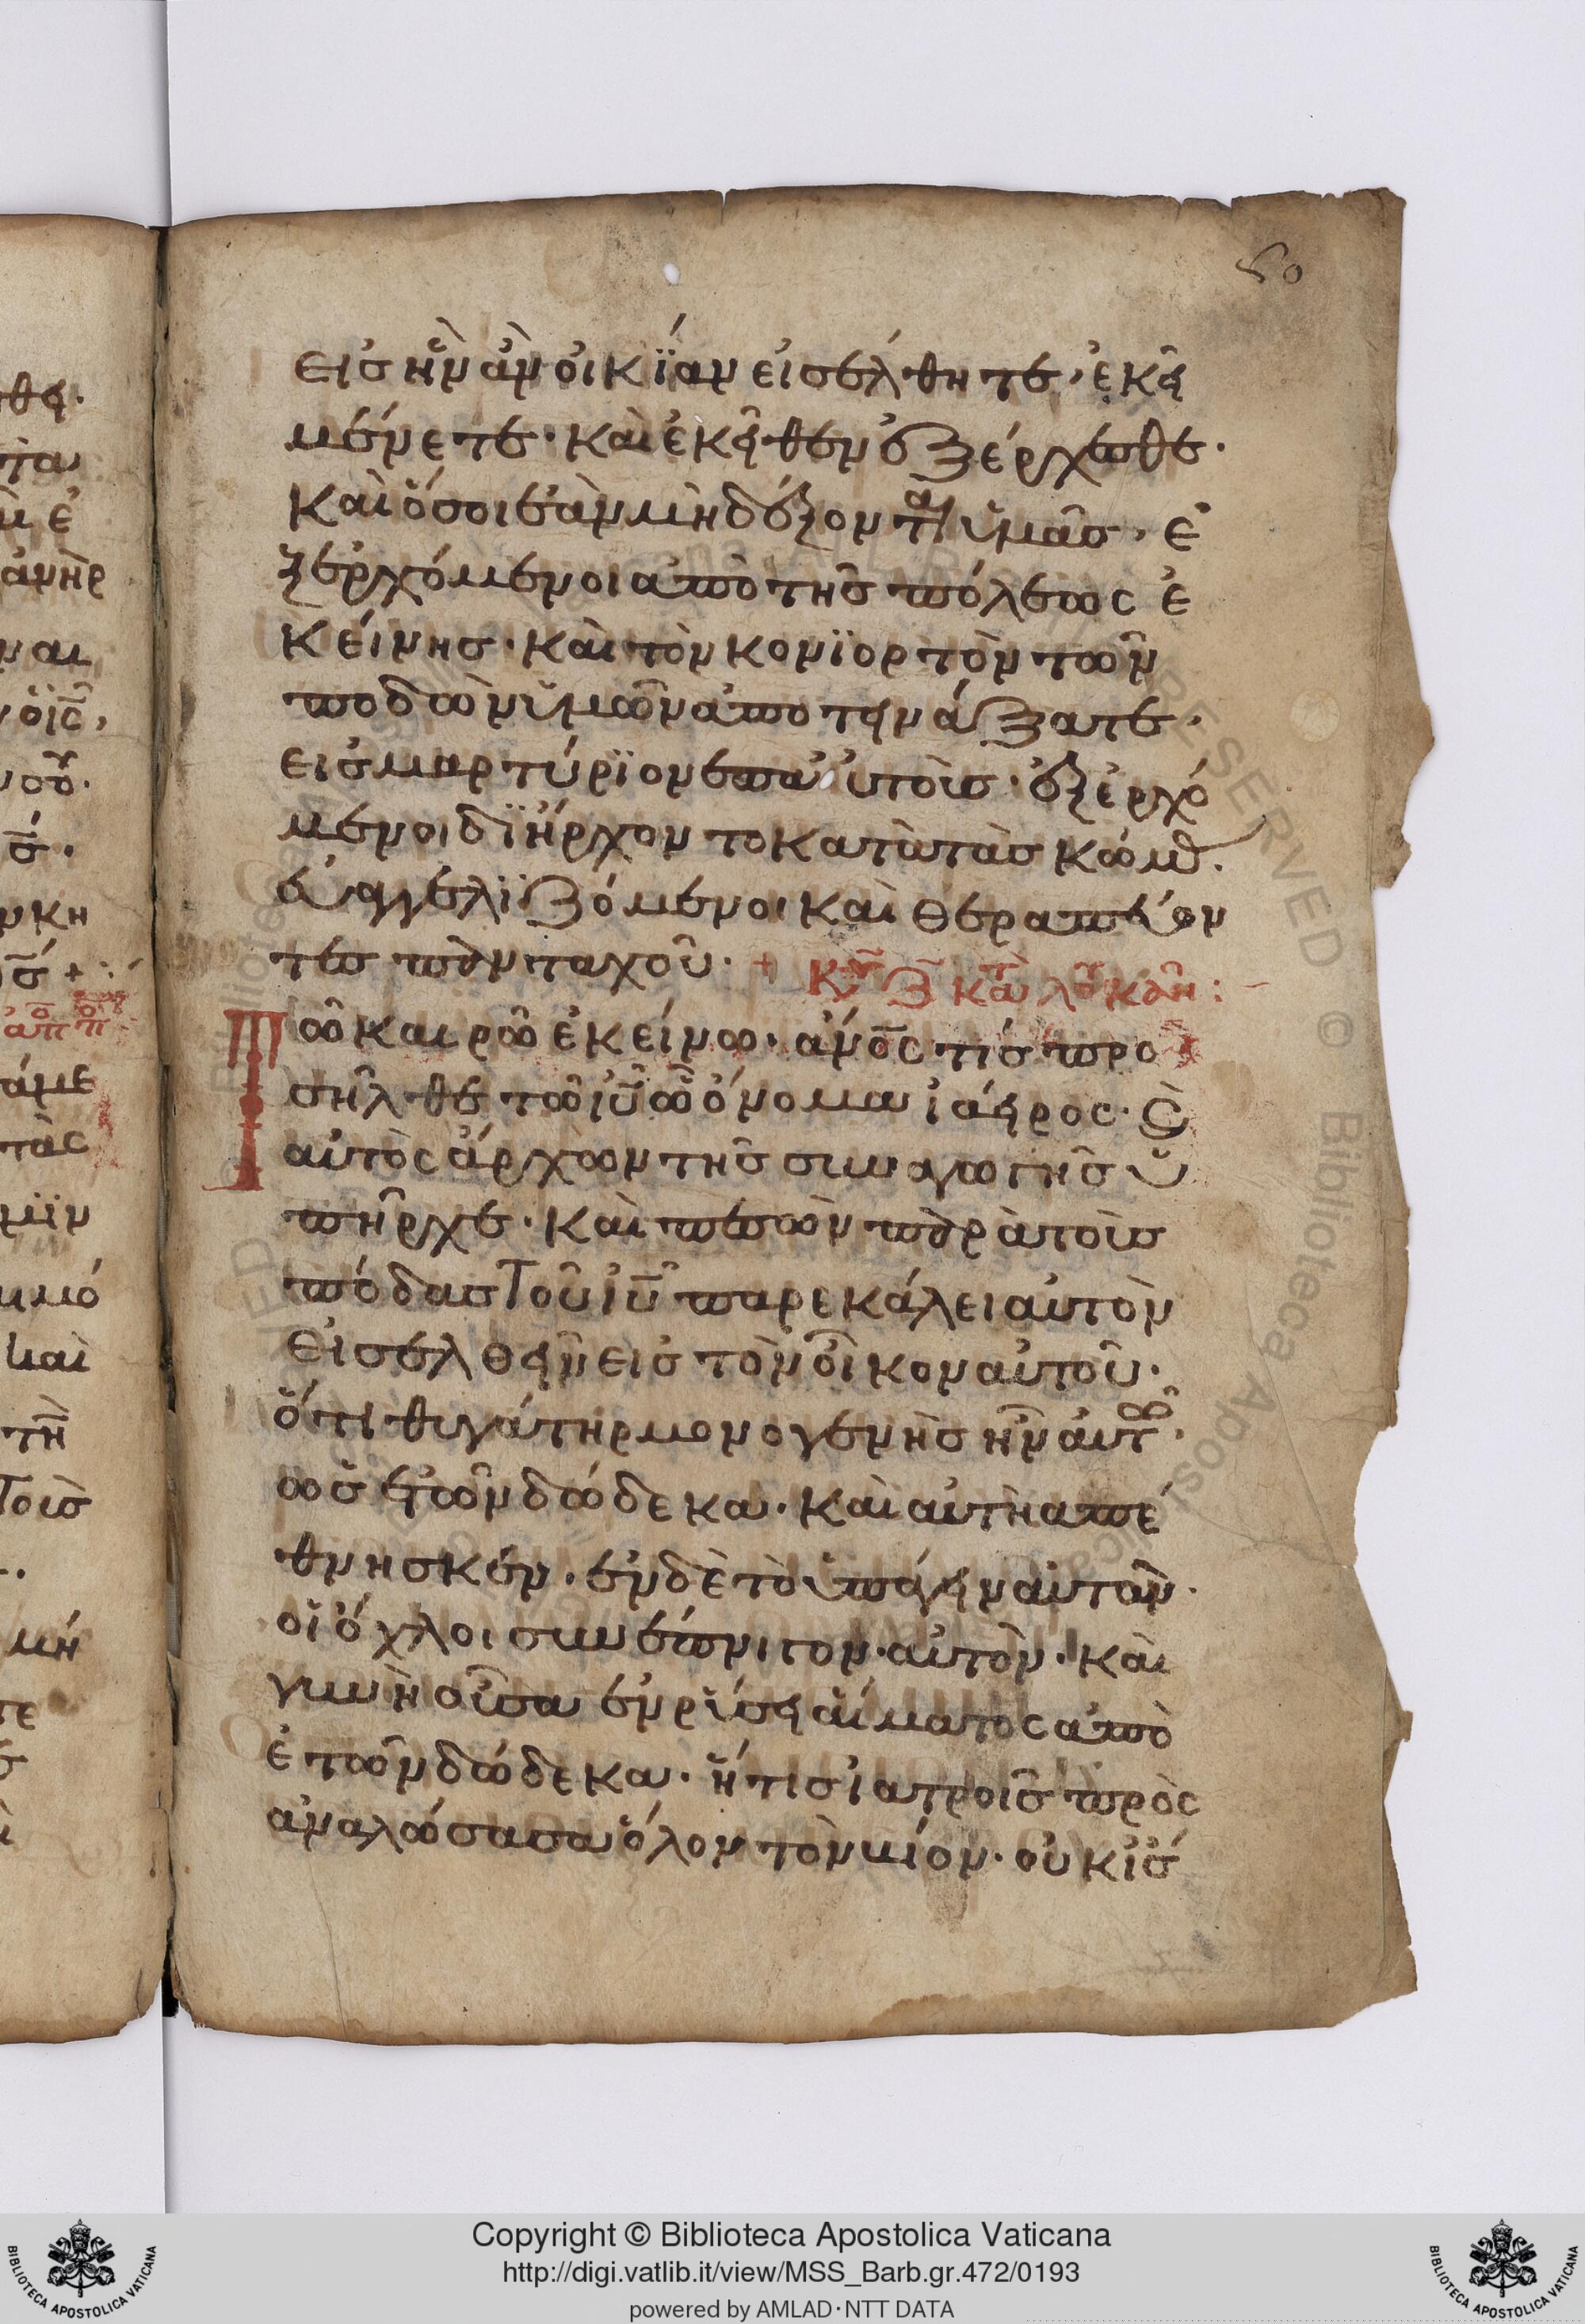 80
εισ ἣν ἀν οἰκΐαν εἰσέλθητε, ἐκεῖ
μένετε· καὶ ἐκεῖθεν ἐξέρχεσθε·
καὶ ὅσοι ἐὰν μὴ δέξονται ὑμᾶσ, ἐ
ξερχόμενοι ἀπὸ τῆσ πόλεως ἐ
κείνησ· καὶ τὸν κονϊορτὸν τῶν
ποδῶν ὑμῶν ἀποτεινάξατε,
εισ μαρτύρϊον επαὐτοὶσ· ἐξερχό
μενοι δϊήρχοντο κατὰ τὰσ κώμ.
εὐαγγελϊζόμενοι καὶ θεραπεύον
τεσ πανταχοῦ· +
Τῶ καιρῶ ἐκείνω· ἄνος τίσ προ
σῆλθε τῶ ἰῦ ὧ ὄνομα ἰάειρος· ϛ
αὐτὸς ἄρχων τῆσ συναγωγῆσ ὑ
πῆρχε· καὶ πεσὼν παρὰ τοὶσ
πόδασ τοῦ ἰῦ παρεκάλει αὐτὸν
εἰσελθεῖν εἰσ τὸν οἶκον αὐτοῦ·
ὅτι θυγάτηρ μονογενὴσ ἦν αὐτῶ·
ὡσ ἐτῶν δώδεκα· καὶ αὐτὴ απέ
θνησκεν· ἐν δὲ τὸ ὑπάγειν αὐτὸν·
οἱ ὄχλοι συνέπνιγον αὐτὸν· καὶ
γυνὴ οὖσα ἐν ρύσει αἵματος ἀπὸ
ἐτῶν δώδεκα· ἥτισ ἰατροῖσ πρὸς
αναλώσασα ὅλον τὸν βίον· οὐκ ἴσ
Copyright © Biblioteca Apostolica Vaticana
http://digi.vatlib.it/view/MSS_Barb.gr.472/0193
powered by AMLAD·NTT DATA
BIBLIOTECA APOSTOLICA VATICANA
BIBLIOTECA APOSTOLICA VATICANA